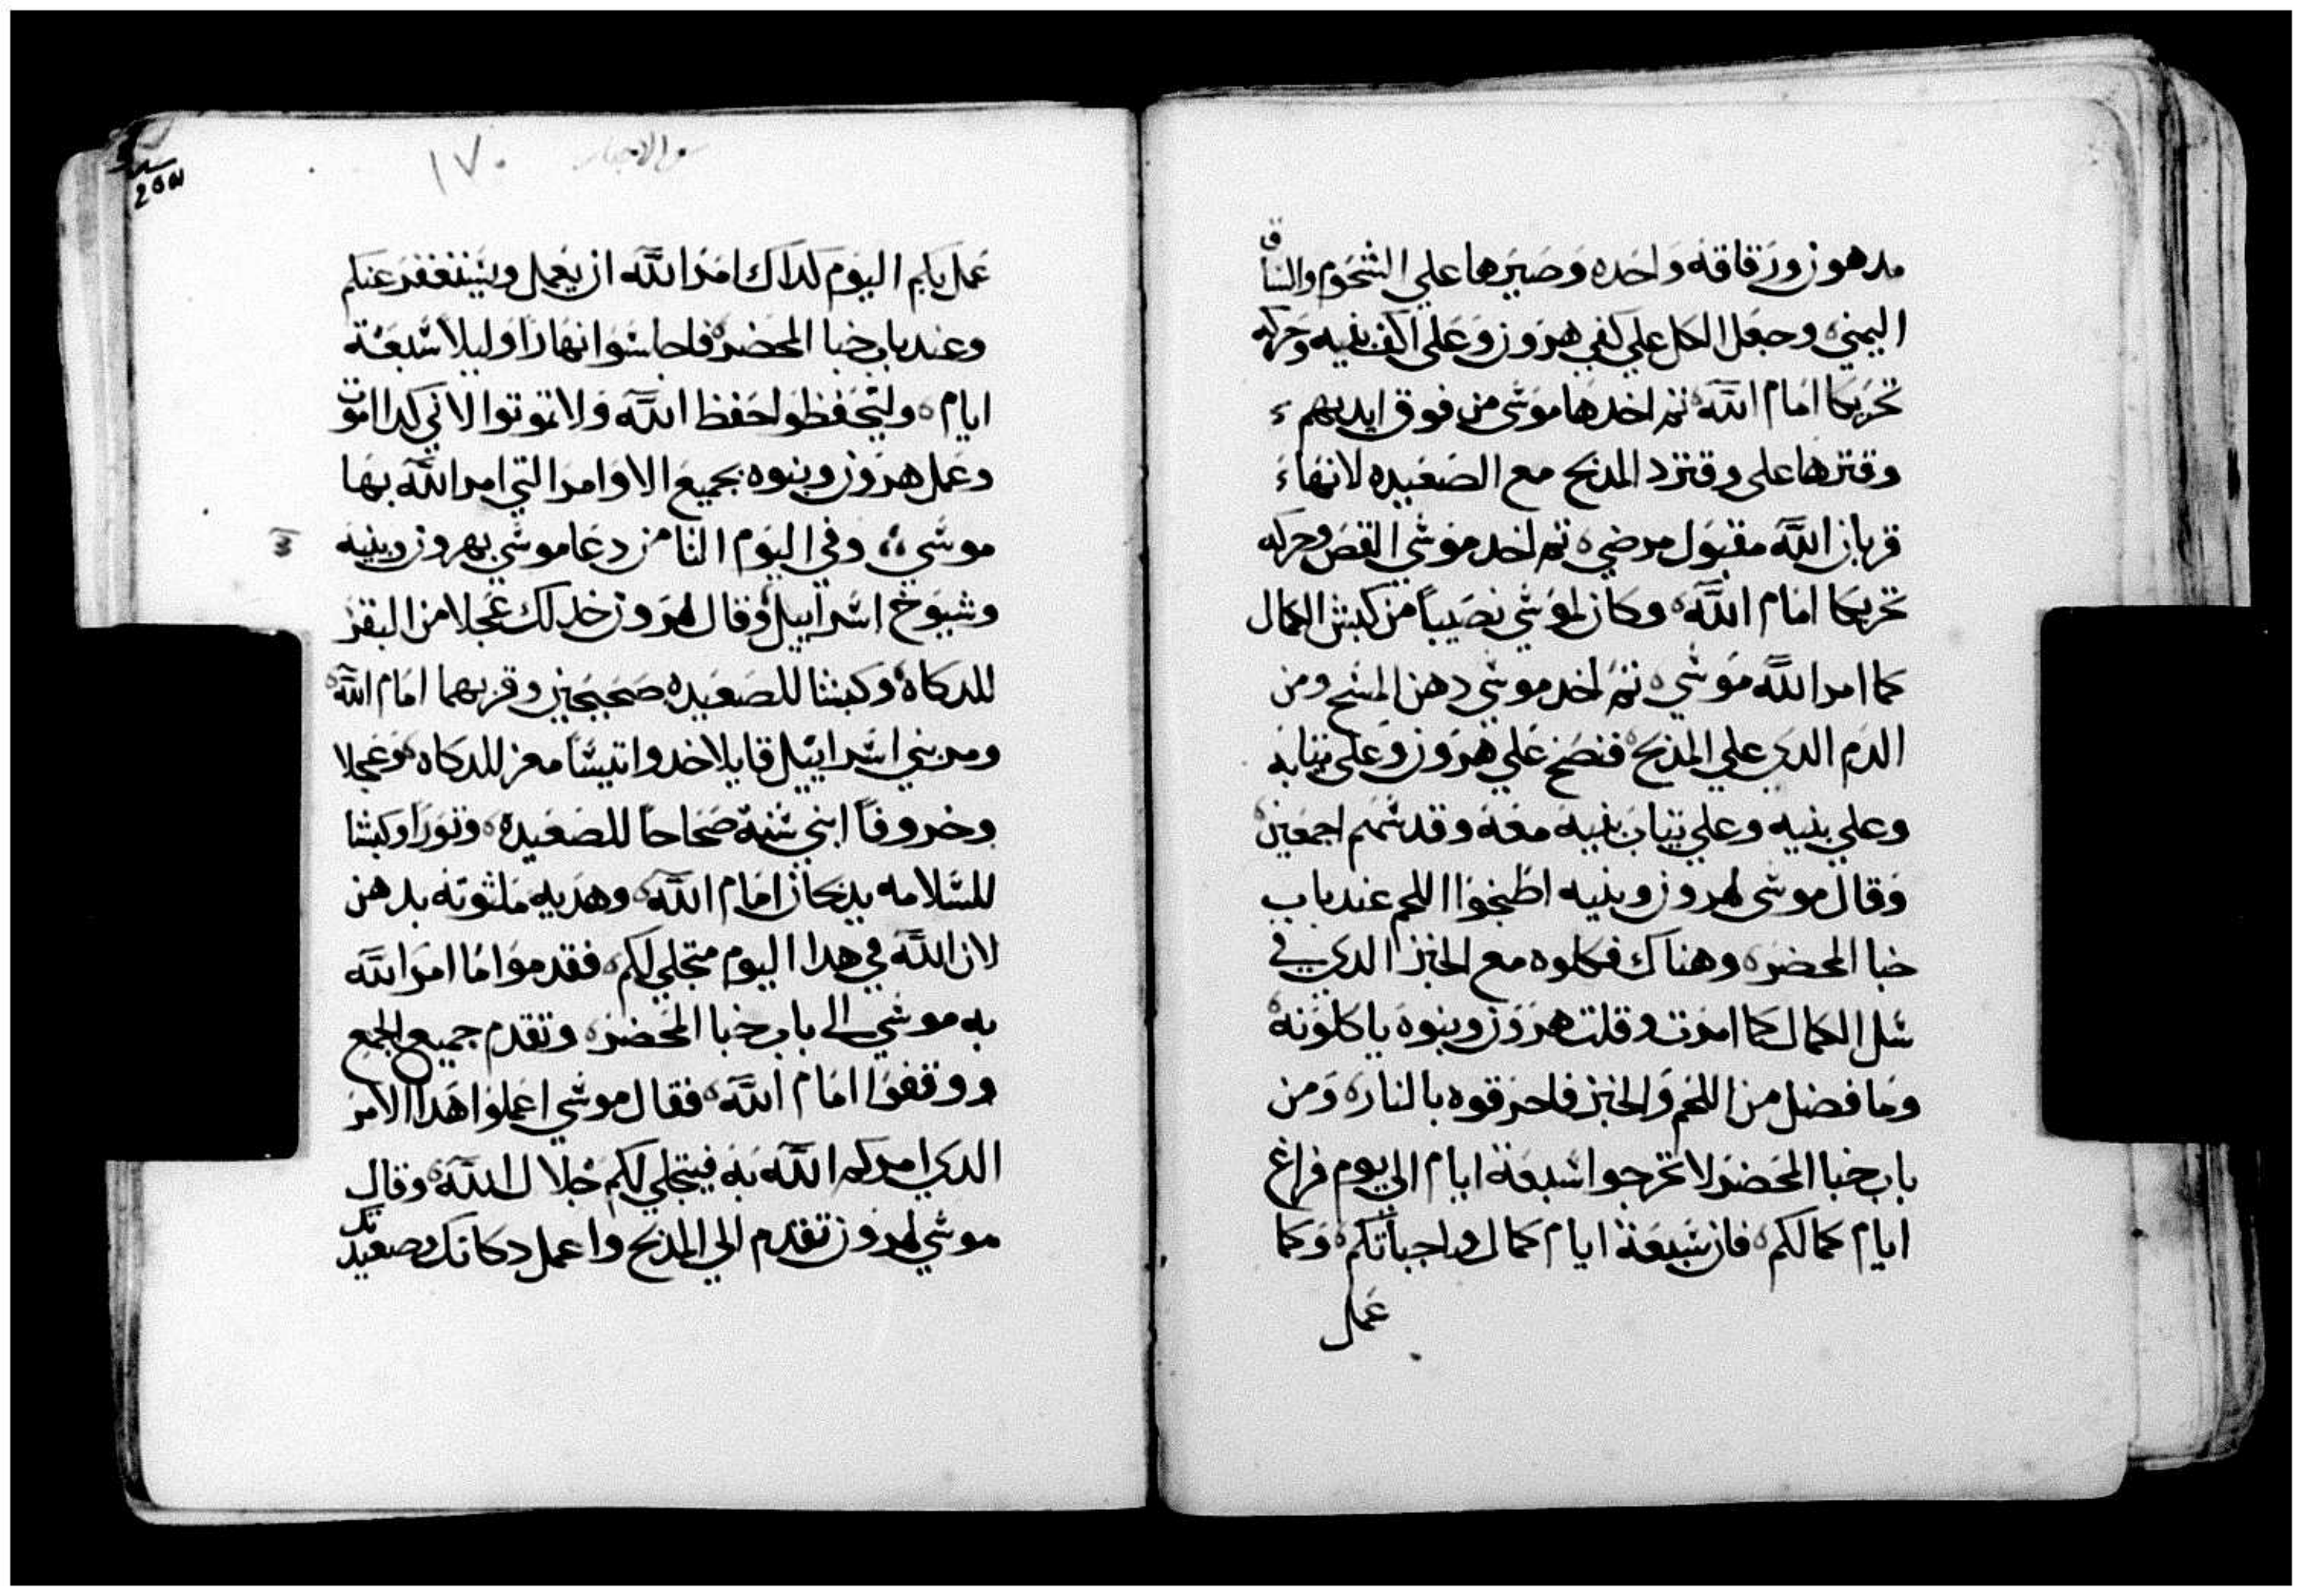 مدهون ورقاقه واحده وصيرها علي الشحوم والساق
اليمني وجعل الكل علي كفي هرون وعلي اكف بنيه وحركه
تحريكا امام الله ثم اخدها موسي من فوق ايديهم
وقترها علي وقترد المدبح مع الصعيده لانها
قربان الله مقبول مرضي ثم اخد موسي القص وحركه
تحريكا امام الله وكان لموسي نصيباً من كبش الكمال
كما امر الله موسي ثم اخد موسي دهن المسح ومن
الدم الدي علي المذبح فنضح علي هرون وعلي ثيابه
وعلي بنيه وعلي ثياب بنيه معه وقدسهم اجمعين
وقال موسي لهرون وبنيه اطبخوا اللحم عند باب
خبا المحضر وهناك فكلوه مع الخبز الدي في
سل الكمال كما امرت وقلت هرون وبنوه ياكلونه
وما فضل من اللحم والخبز فاحرقوه بالنار ومن
باب خبا المحضر لا تخرجوا سبعة ايام الي يوم فراغ
ايام كمالكم فان سبعة ايام كمال واجباتكم وكما
عمل
١٧٠
سفر الاحبار
عمل بكم اليوم كداك امر الله ان يعمل ويستغفر عنكم
وعند باب خبا المحضر فاجلسوا نهاراً وليلا سبعة
ايام وليحفظوا حفظ الله ولا تموتوا لاني كدا امرت
وعمل هرون وبنوه بجميع الاوامر التي امر الله بها
موسي وفي اليوم الثامن دعا موسي بهرون وبنيه
وشيوخ اسراييل وقال لهرون خد لك عجلا من البقر
للدكاه وكبشا للصعيده صحيحين وقربهما امام الله
ومر بني اسراييل قايلا خدوا تيساً معز للدكاه وعجلا
وخروفاً ابني سنة صحاحاً للصعيده وثورا وكبشا
للسلامه يدبحان امام الله وهديه ملتوته بدهن
لان الله في هدا اليوم متجلي لكم فقدموا ما امر الله
به موسي الي باب خبا المحضر وتقدم جميع الجمع
ووقفوا امام الله فقال موسي اعملوا هدا الامر
الدي امركم الله به فيتجلي لكم جلال الله وقال
موسي لهرون تقدم الي المدبح واعمل دكاتك وصعيدتك